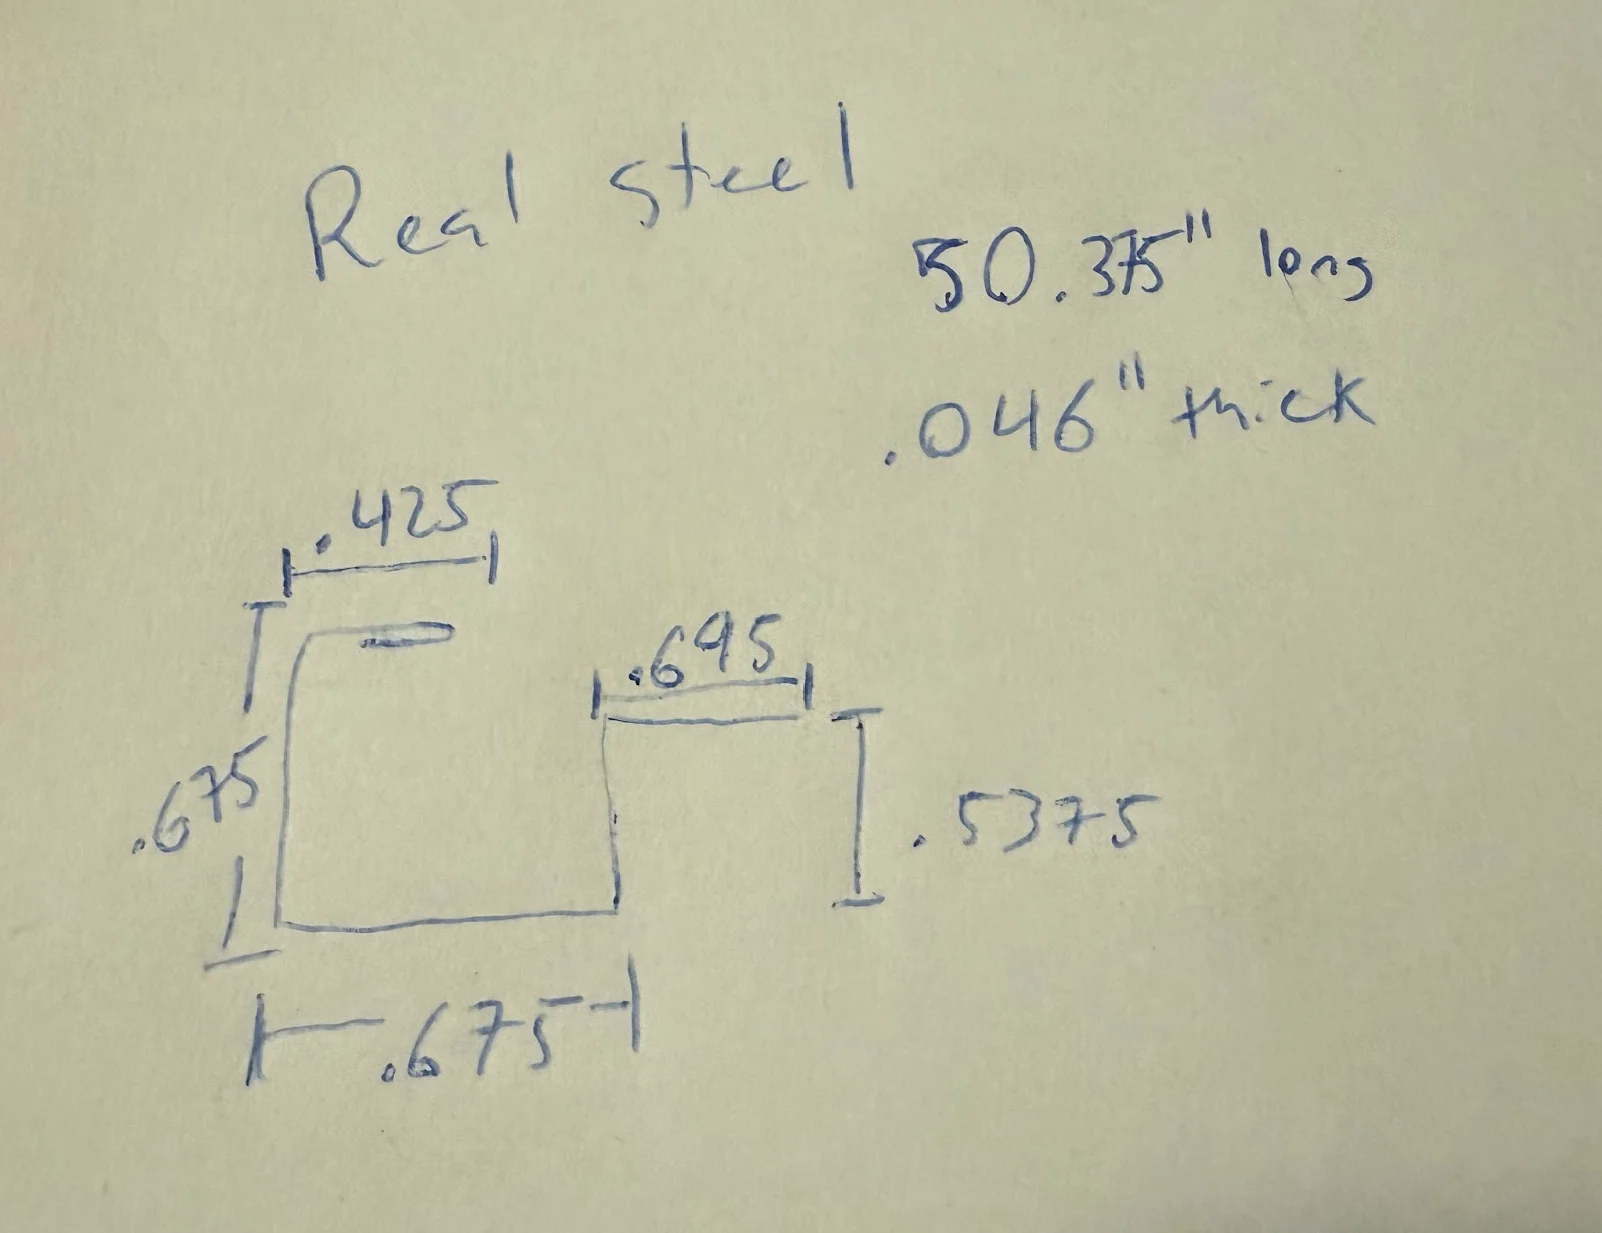 Real steel
50.375" long
.046" thick
.425
.695
.675
.5375
.675